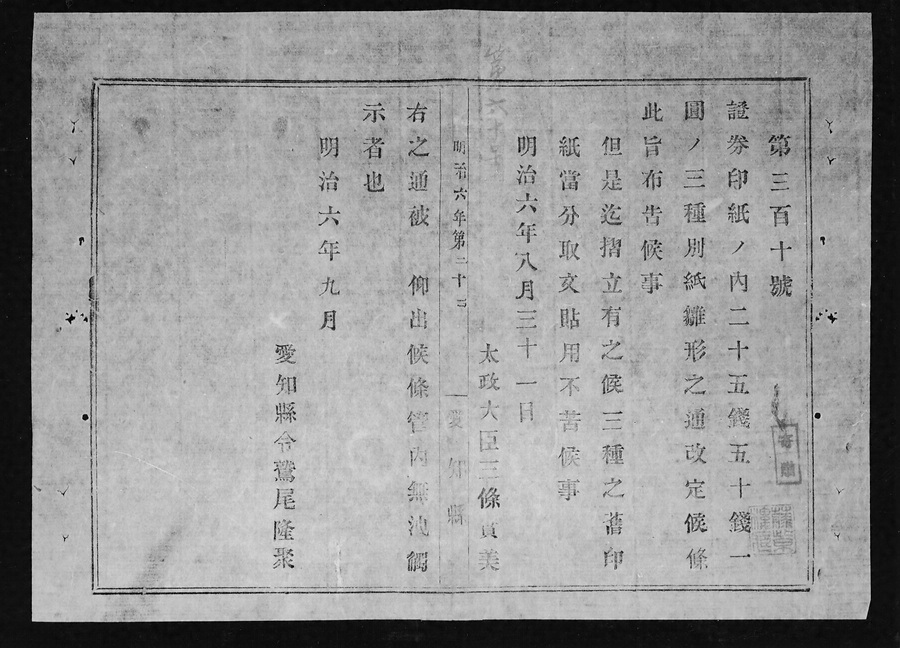 第三百十號
證券印紙ノ內二十五錢五十錢一
圓ノ三種別紙雛形之通改定候條
此旨布告候事
但是迄摺立有之候三種之舊印
紙當分取交貼用不苦候事
明治六年八月三十一日
太政大臣三條實美
明治六年第二十三
愛知縣
右之通被 仰出候條管內無洩觸
示者也
明治六年九月
愛知縣令鷲尾隆聚